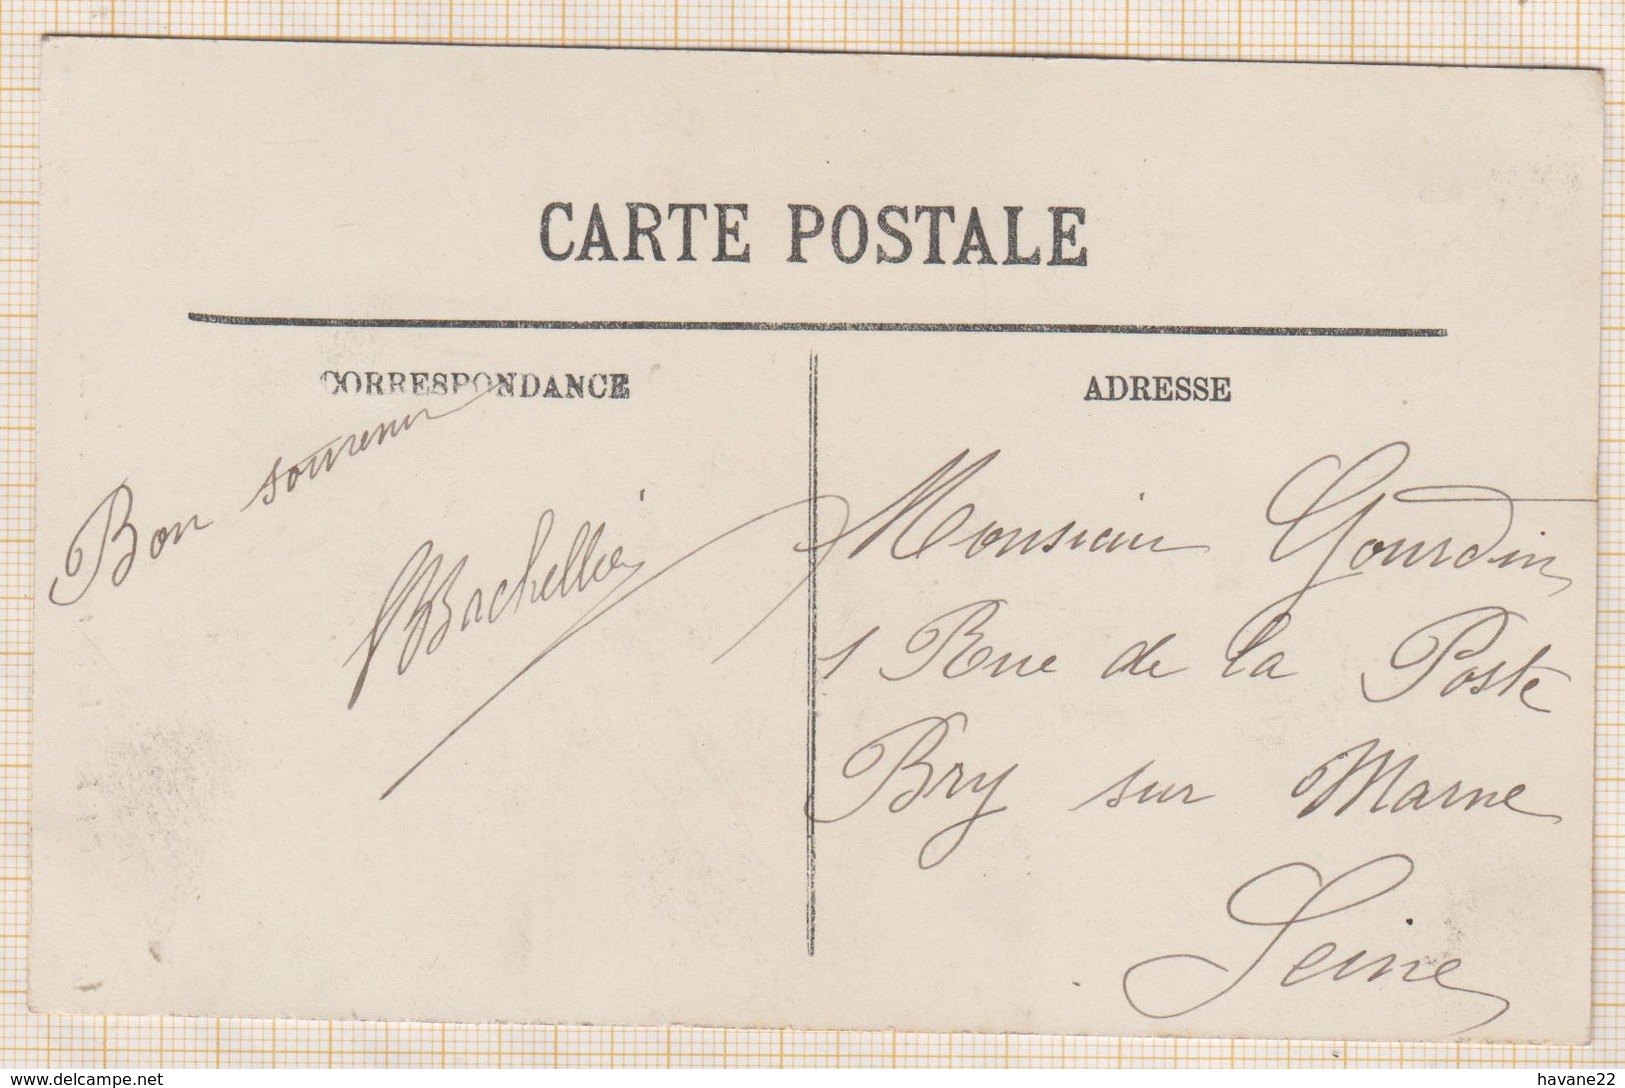 CARTE POSTALE
CORRESPONDANCE
ADRESSE
Bon souvenir
Monsieur Gourdin
1 Rue de la Poste
Bry sur Marne
Seine
www.delcampe.net
havane22